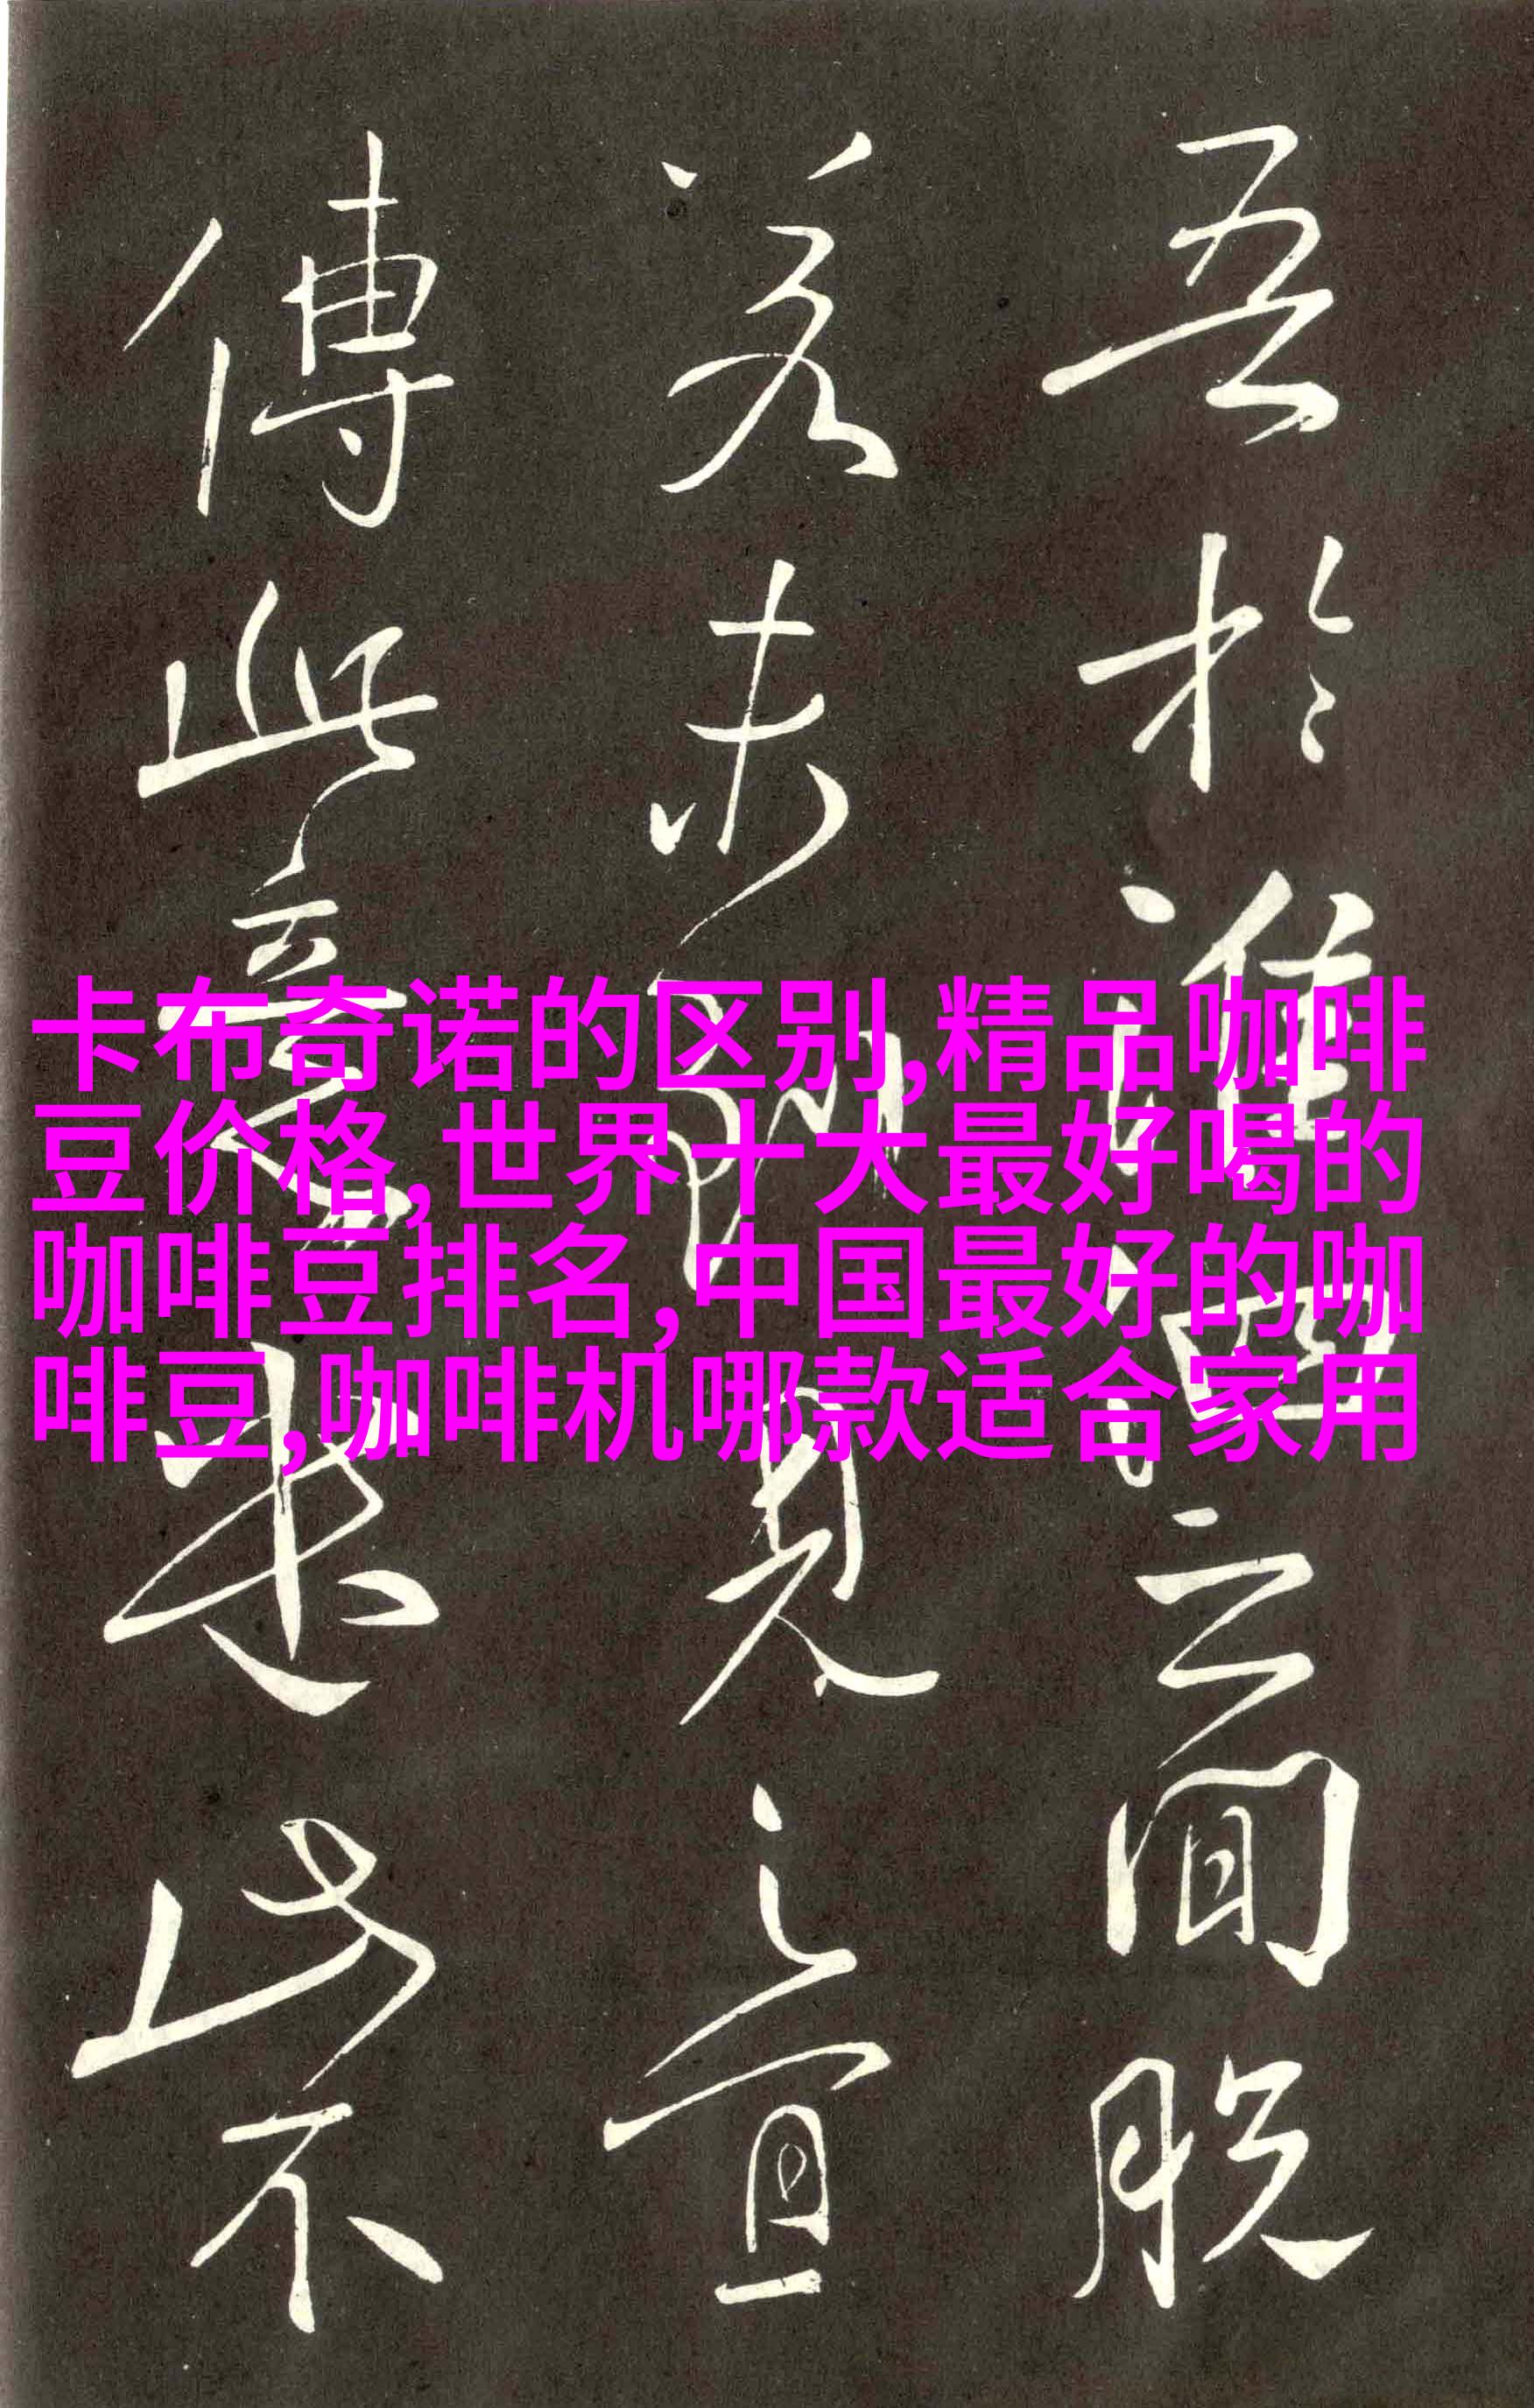 吾於淮
云間脱
若未
見之宜
傳此意
是此不
卡布奇诺的区别,精品咖啡
豆价格,世界十大最好喝的
咖啡豆排名,中国最好的咖
啡豆,咖啡机哪款适合家用